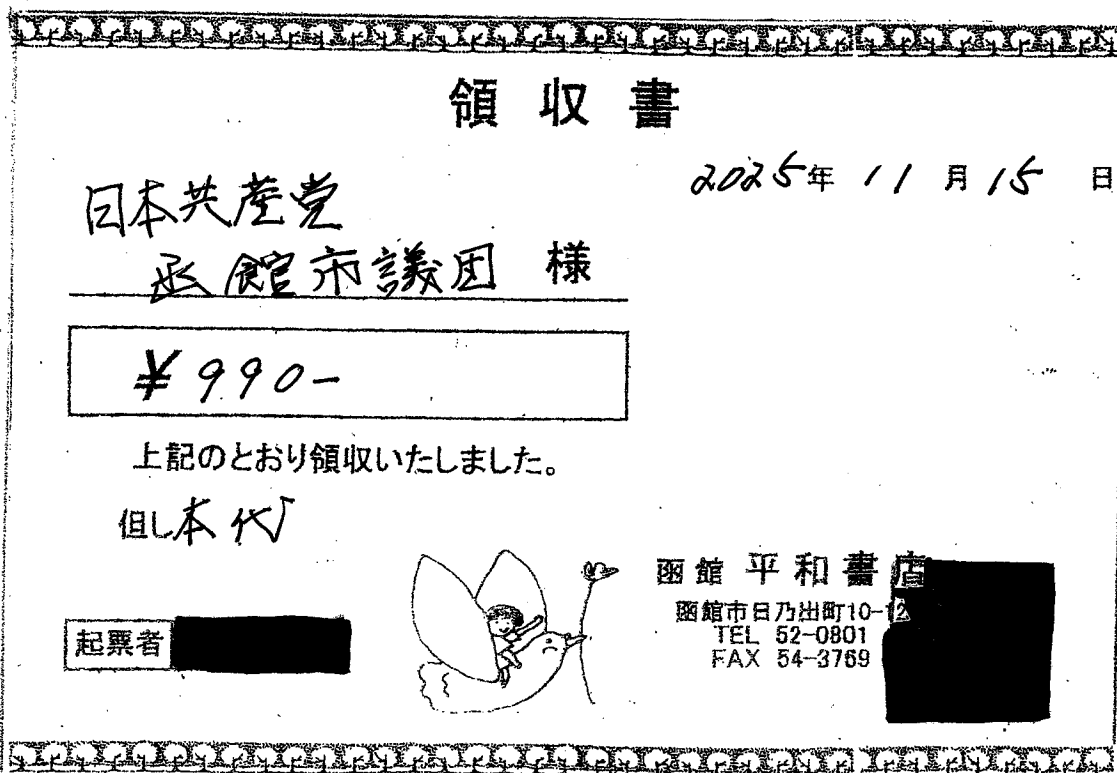 領収書
2025年 11月 15日
日本共産党
函館市議団 様
¥990-
上記のとおり領収いたしました。
但し本代
函館 平和書店
函館市日乃出町10-12
TEL 52-0801
FAX 54-3769
起票者